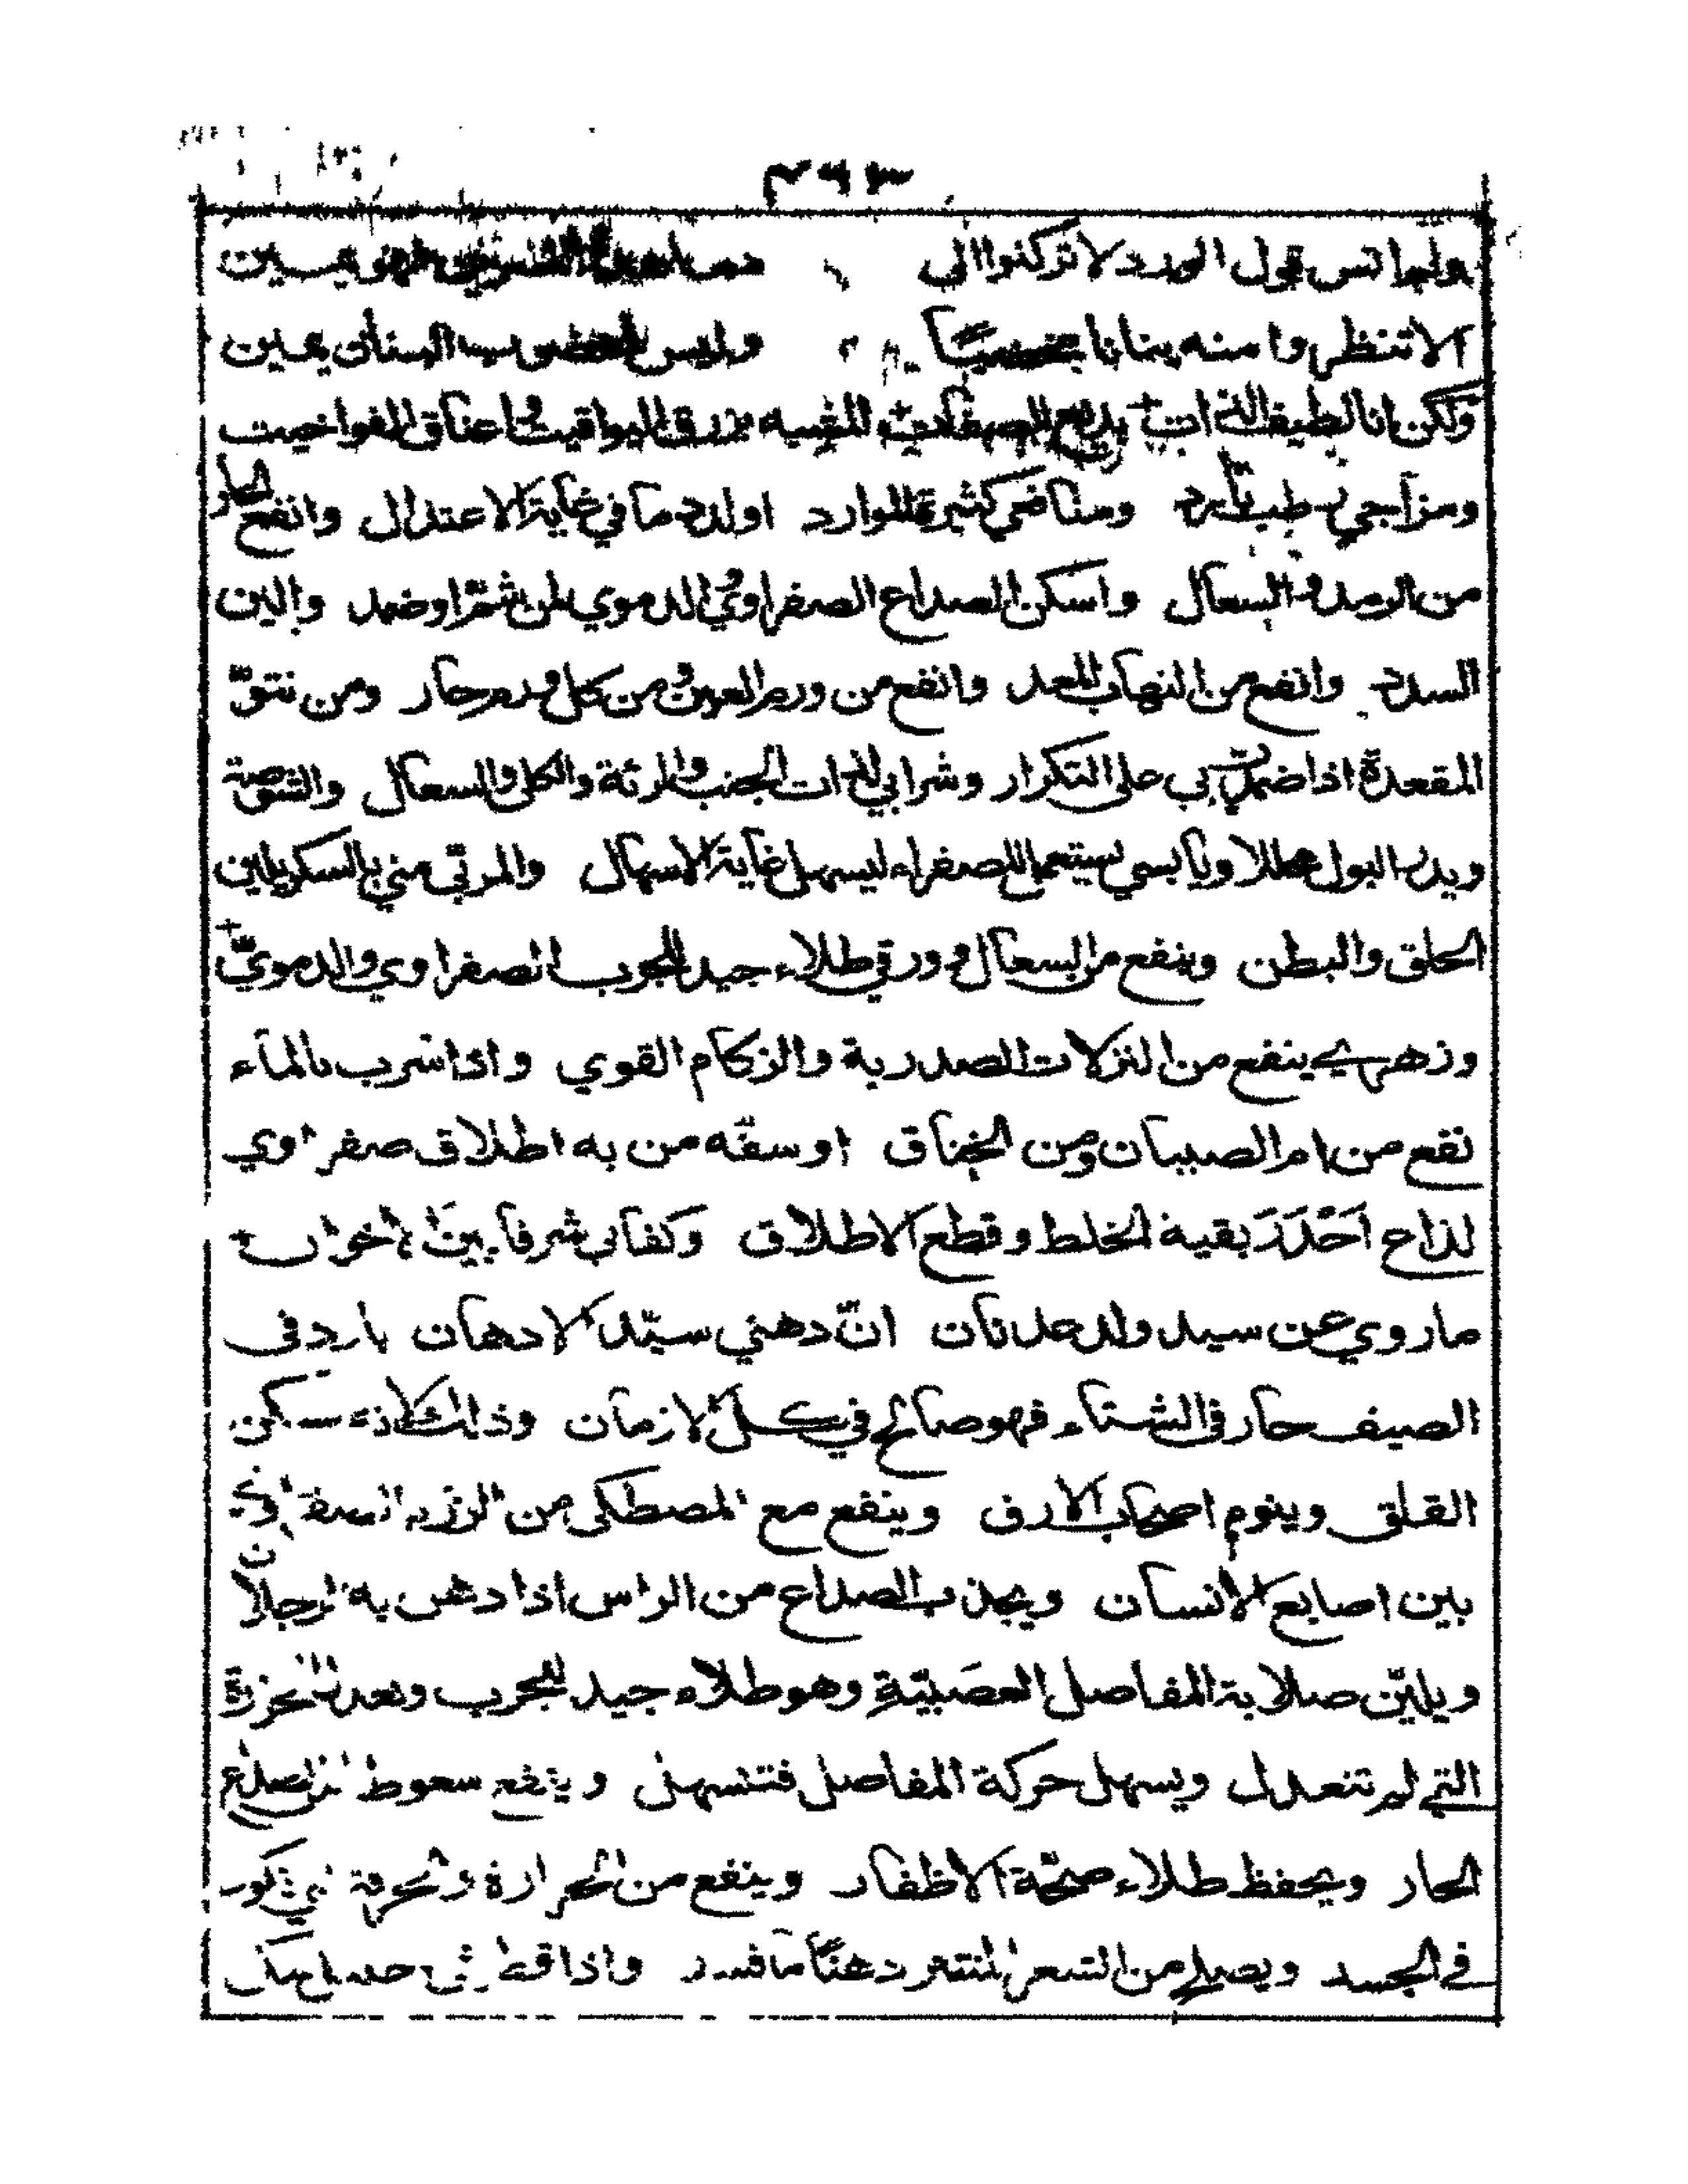 ولم انس قول الورد لا تركنوا الى
الا تنظروا منه بنانا مخضبا وليس لمخضوب البنان يمين
ولكن انا لطيف الذات بديع الصفات للشبيه بزرق اليواقيت واعناق الفواخيت
ومزاجي رطب بارد ومنافعي كثيرة الموارد اولد دما في غاية الاعتدال وانفع الحار
من الرمد والسعال واسكن الصداع الصفراوي والدموي لمن شمّ او ضمد والين
السدد وانفع من التهاب المعد وانفع من ورم العين ومن كل ورم حار ومن نتوّ
المقعدة اذا ضمدت بي على التكرار وشرابي لذات الجنب والرئة والكلى والسعال والشوصة
ويدر البول وبابسي يستعمل للصفراء ليسهل غاية الاسهال والمربّي مني بالسكر يلين
الحلق والبطن وينفع من السعال وورقي طلاء جيد للجرب الصفراوي والدمويّ
وزهري ينفع من النزلات الصدرية والزكام القوي واذا شرب بالماء
نفع من ام الصبيان ومن الخناق او سفّه من به اطلاق صفراوي
لذاع احدر بقية الخلط وقطع الاطلاق وكفاني شرفا بين الاخوان
ما روي عن سيد ولد عدنان انّ دهني سيّد الادهان بارد في
الصيف حار في الشتاء فهو صالح في كل الازمان وذلك لانه سكن
القلق وينوم اصحاب الارق وينفع مع المصطكى من
بين اصابع الانسان ويجذب الصداع من الراس اذا دهن به الرجلان
ويليّن صلابة المفاصل العصبيّة وهو طلاء جيد للجرب
التي لم تنعدل ويسهل حركة المفاصل فتتسهل وينفع سعوطا من الصداع
الحار ويحفظ طلاء صحّة الاظفار وينفع من الحرارة والحرقة
في الجسد ويصلح من الشعر المنتثر دهنًا ما فسد واذا قطر في